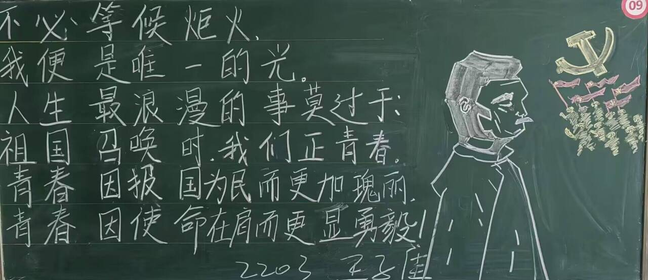 不必等候炬火,
我便是唯一的光。
人生最浪漫的事莫过于:
祖国召唤时,我们正青春。
青春因报国为民而更加瑰丽,
青春因使命在肩而更显勇毅!
2203 王子佳
09